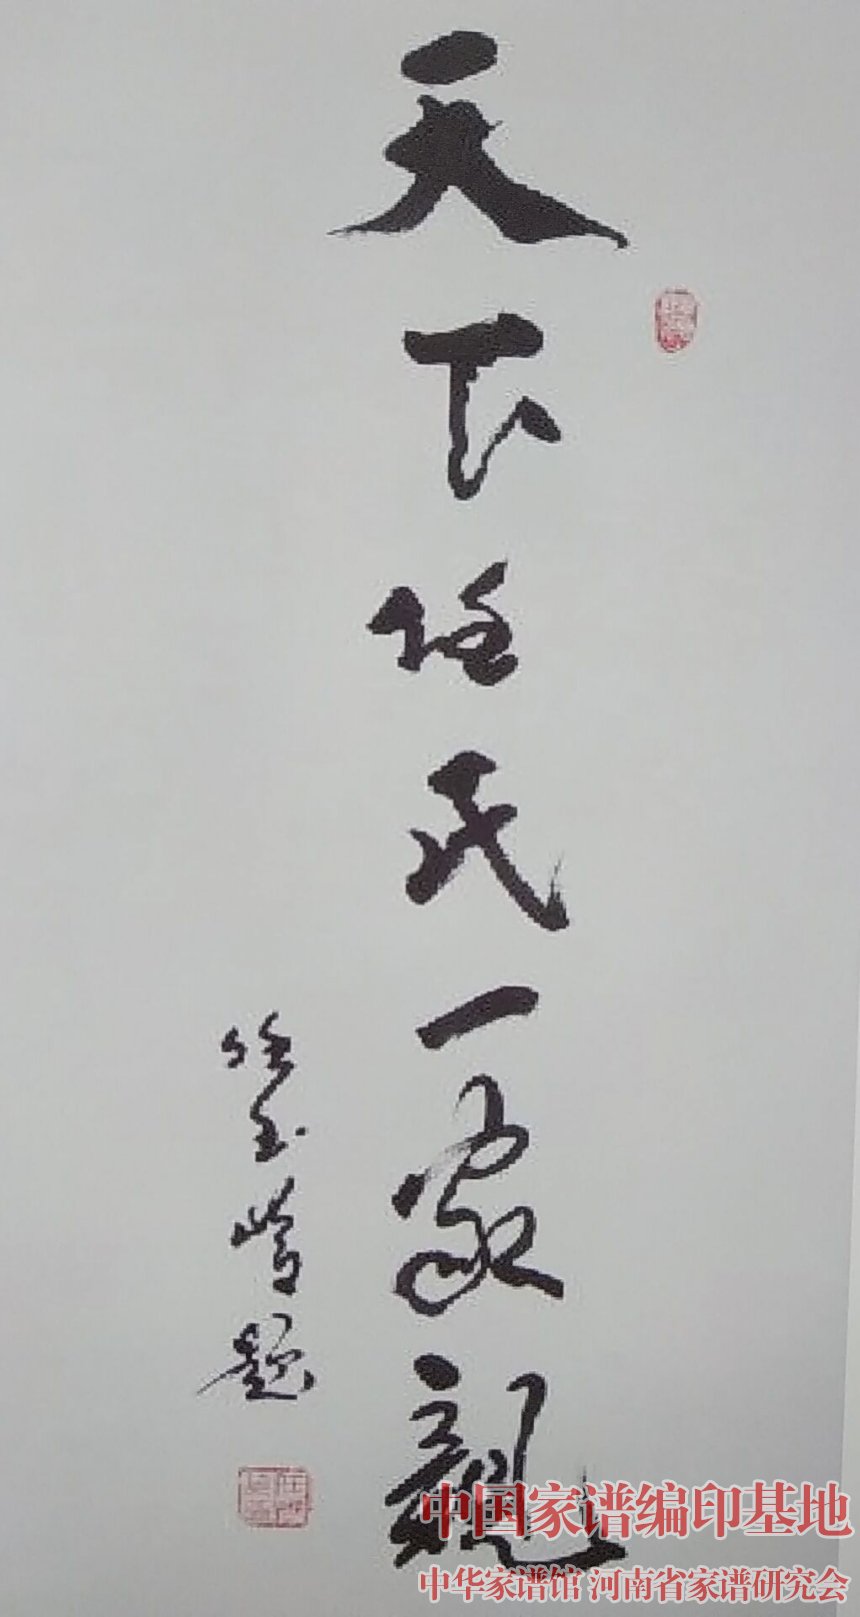 天下任氏一家親
任玉岭題
中国家谱编印基地
中华家谱馆 河南省家谱研究会